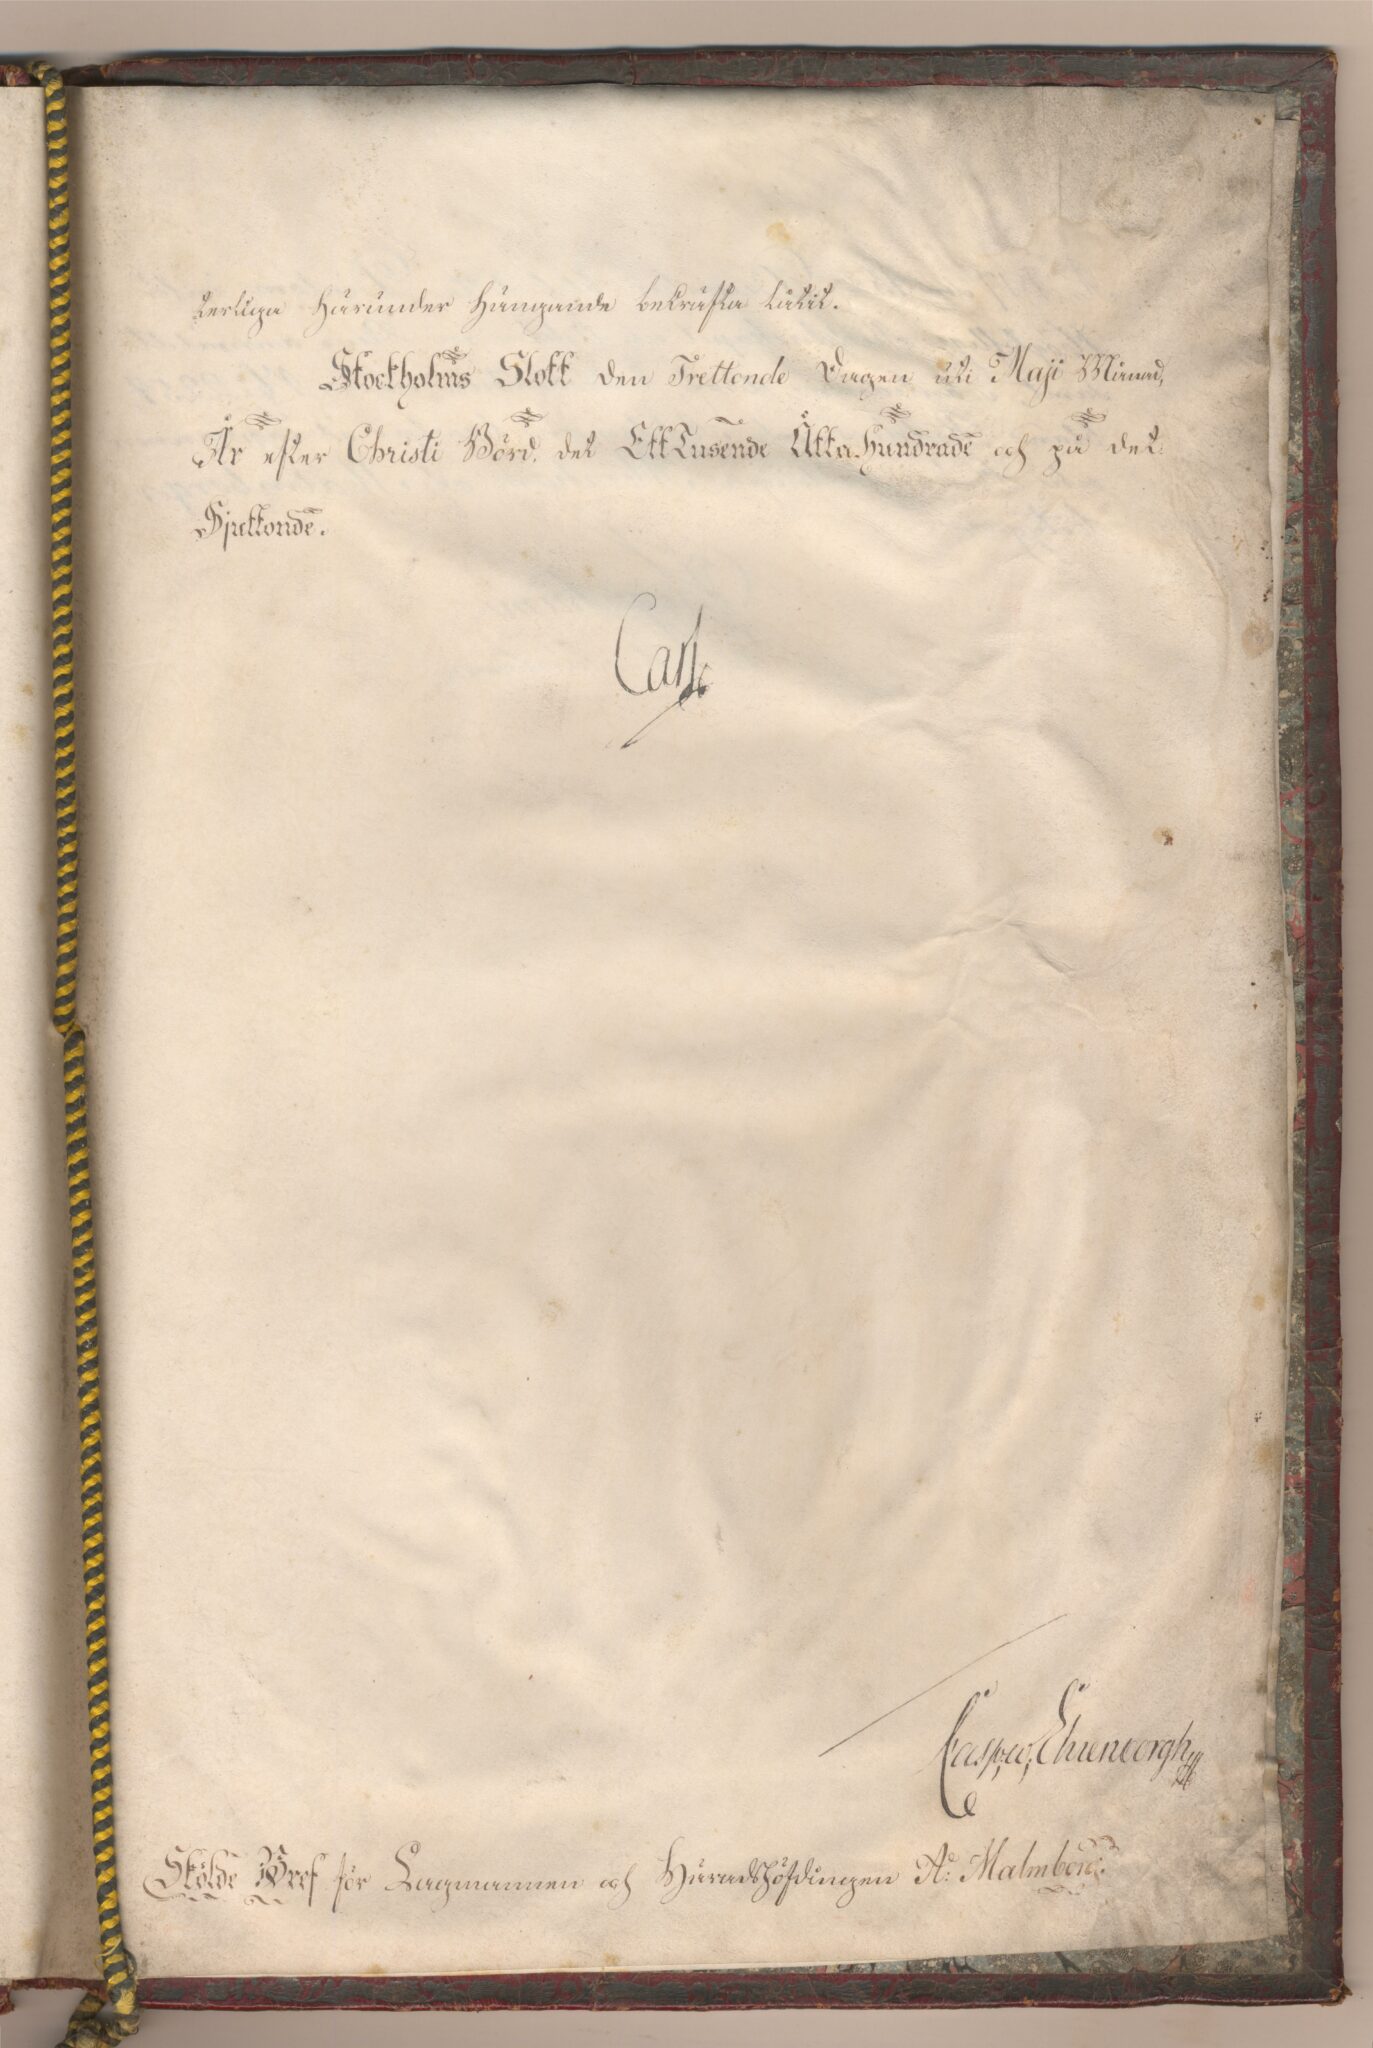 terliga härunder hängande bekräfta låtit.
Stockholms Slott den Trettonde Dagen uti Maji Månad,
År efter Christi Börd, det Ett Tusende Åtta Hundrade och på det
Sjuttonde.
Carl
Casper Ehrenborgh
Skölde Bref för Lagmannen och Häradshöfdingen A: Malmborg.